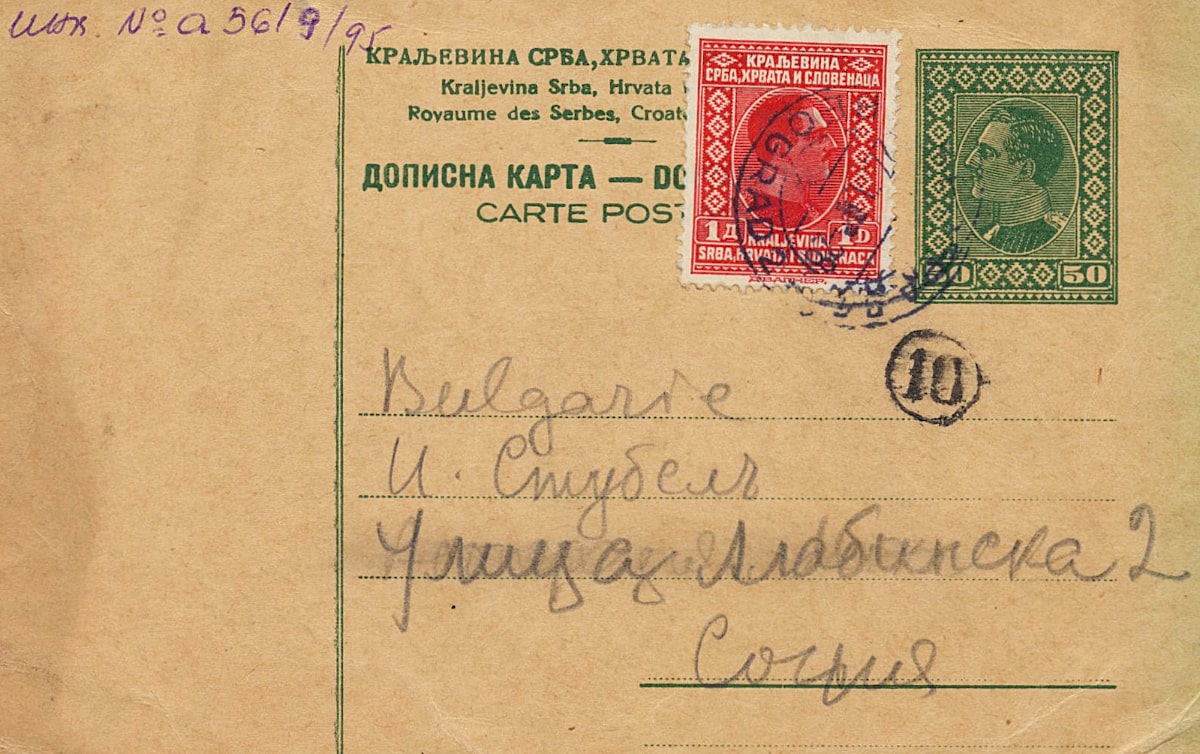 инв. № а 56/9/95
КРАЉЕВИНА СРБА, ХРВАТА
Kraljevina Srba, Hrvata
Royaume des Serbes, Croat
ДОПИСНА КАРТА — DO
CARTE POST
КРАЉЕВИНА
СРБА, ХРВАТА И СЛОВЕНАЦА
1Д 1D
KRALJEVINA
SRBA, HRVATA I SLOVENACA
50 50
10
Bulgarie
И. Стубелъ
Улица Алабинска 2
София